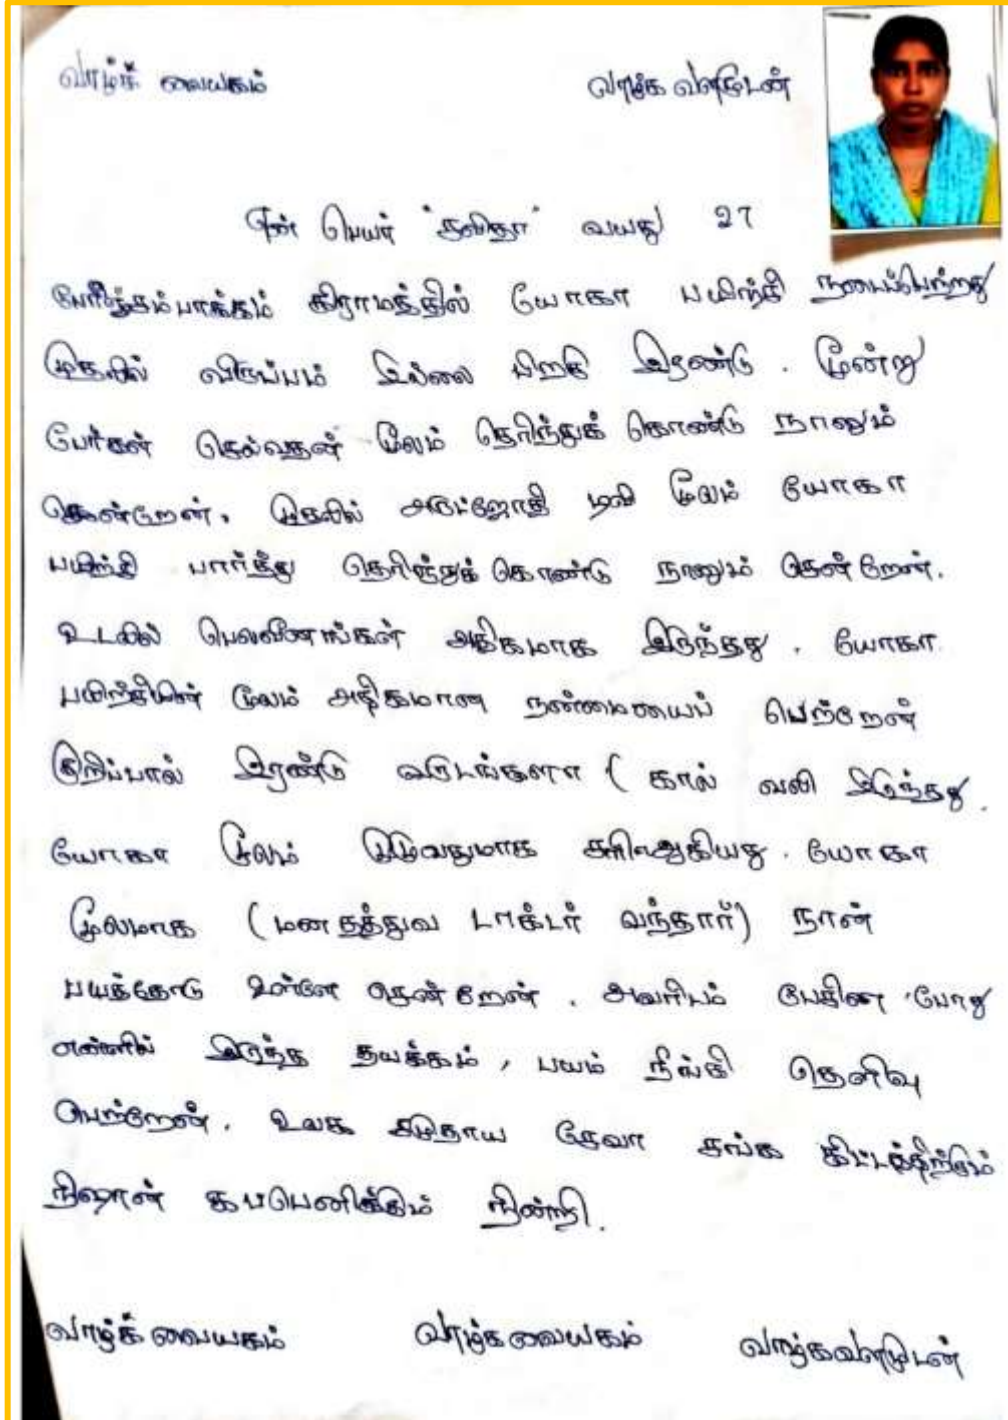 வாழ்க வையகம் வாழ்க வளமுடன்
என் பெயர் "கவிதா" வயது 27
கிராமத்தில் யோகா பயிற்சி நடைப்பெற்றது
முதலில் விருப்பம் இல்லை பிறகு இரண்டு . மூன்று
பேர்கள் செல்வதன் மூலம் தெரிந்துக் கொண்டு நானும்
சென்றேன். முதலில் மூலம் யோகா
பயிற்சி பார்த்து தெரிந்துக் கொண்டு நானும் சென்றேன்.
உடலில் பெலவீனங்கள் அதிகமாக இருந்தது . யோகா
பயிற்சியின் மூலம் அதிகமான நன்மையைப் பெற்றேன்
குறிப்பால் இரண்டு வருடங்களா ( கால் வலி இருந்தது .
யோகா மூலம் முழுவதுமாக சரிஆகியது . யோகா
மூலமாக (மனதத்துவ டாக்டர் வந்தார்) நான்
பயத்தோடு உள்ளே சென்றேன் . அவரிடம் பேசின போது
என்னில் இருந்த தயக்கம் , பயம் நீங்கி தெளிவு
பெற்றேன் . உலக சமுதாய சேவா சங்க திட்டத்திற்கும்
நிஷான் கம்பெனிக்கும் நன்றி .
வாழ்க வையகம் வாழ்க வையகம் வாழ்கவளமுடன்